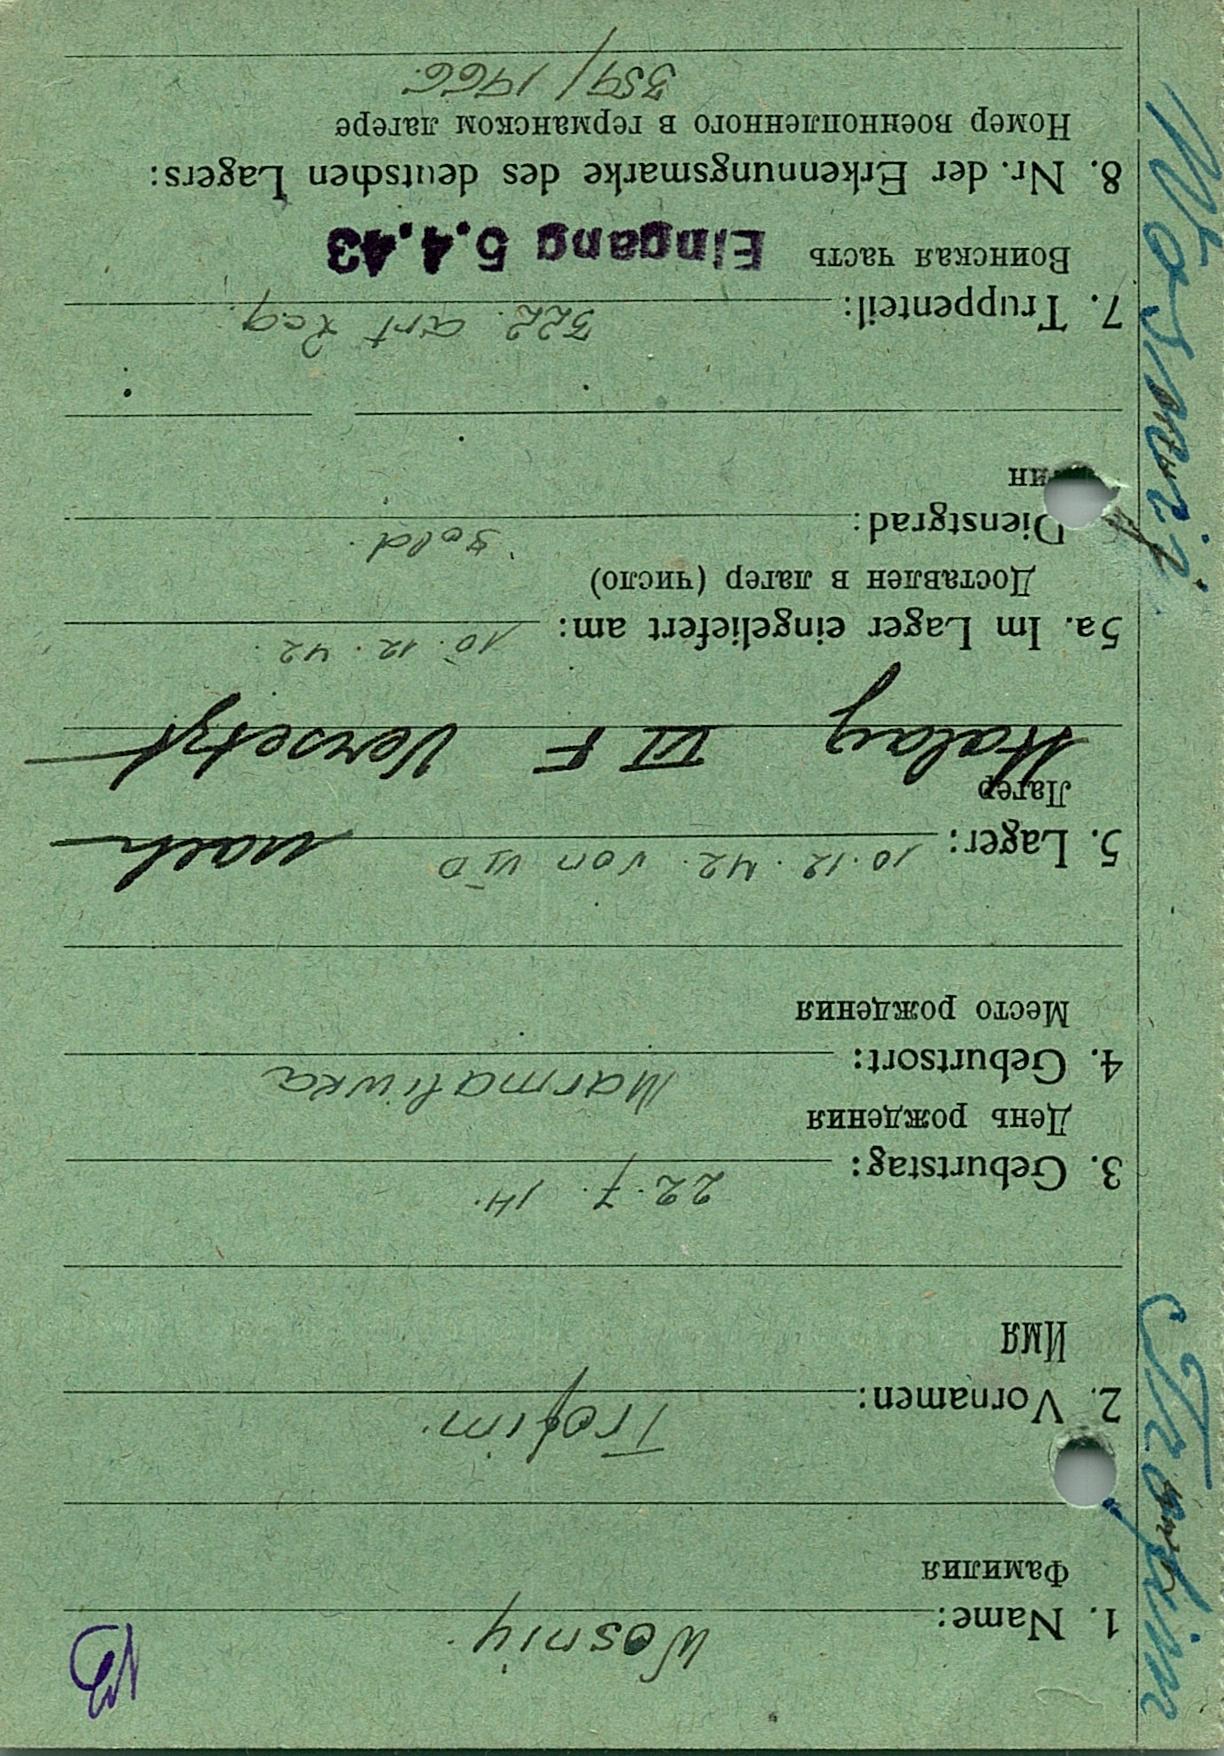 1. Name: Wosnij.
Фамилия
2. Vornamen: Trofim.
Имя
3. Geburtstag: 22. 7. 14.
День рождения
4. Geburtsort: Marmaliwka
Место рождения
5. Lager: 10. 12. 42. von VI D nach
Лагер
Stalag VI F Versetzt
5a. Im Lager eingeliefert am: 10. 12. 42.
Доставлен в лагер (число)
Dienstgrad: Sold.
7. Truppenteil: 322. art Reg.
Воинская часть Eingang 5.4.43
8. Nr. der Erkennungsmarke des deutschen Lagers:
Номер военнопленного в германском лагере
359/1966
Trofim Wosnij